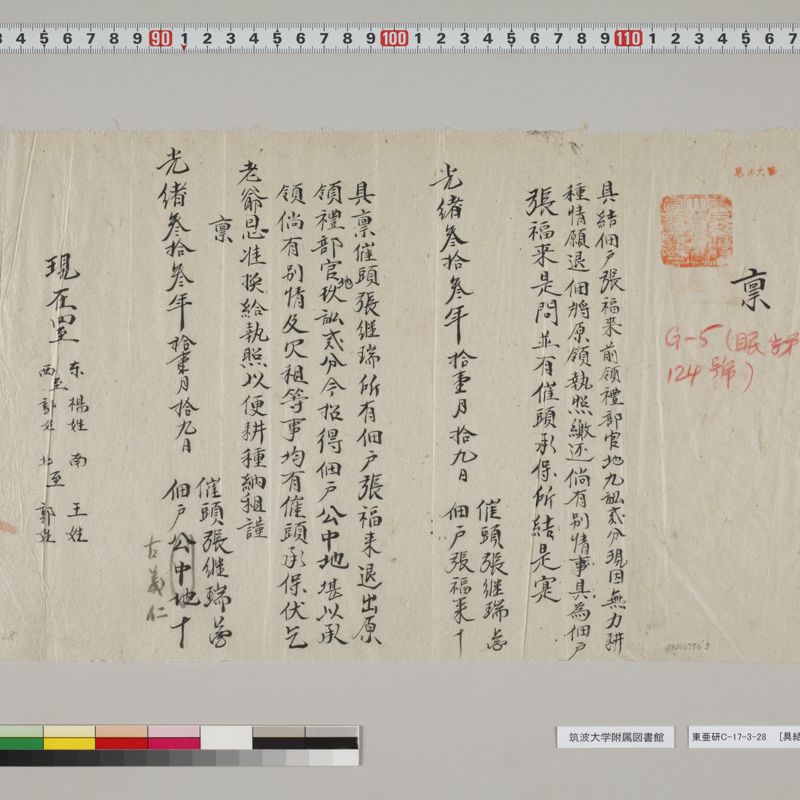 3 4 5 6 7 8 9 90 1 2 3 4 5 6 7 8 9 100 1 2 3 4 5 6 7 8 9 110 1 2 3 4 5 6 7
稟
G-5(
124號)
具結佃戶張福来前領禮部官地九畝貳分現因無力耕
種情願退佃將原領執照繳还倘有别情事具為佃戶
張福来是問並有催頭承保所結是寔
催頭張继瑞
光緒叄拾叄年拾壹月拾九日 佃戶張福来十
具稟催頭張继瑞所有佃戶張福来退出原
領禮部官地玖畝貳分今招得佃戶公中地堪以承
領倘有别情及欠租等事均有催頭承保伏乞
老爺恩准换給執照以便耕種納租謹
稟
催頭張继瑞
光緒叄拾叄年拾壹月拾九日 佃戶公中地十
古義仁
現在四至
东楊姓 南王姓
西至郭姓 北至郭姓
筑波大学附属図書館
東亜研C-17-3-28 [具結